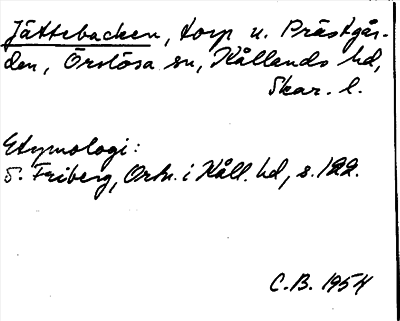 Jättebacken, torp u. Prästgår-
den, Örslösa sn, Kållands hd,
Skar. l.
Etymologi:
S. Friberg, Ortn. i Kåll. hd, s. 122.
C.B. 1954